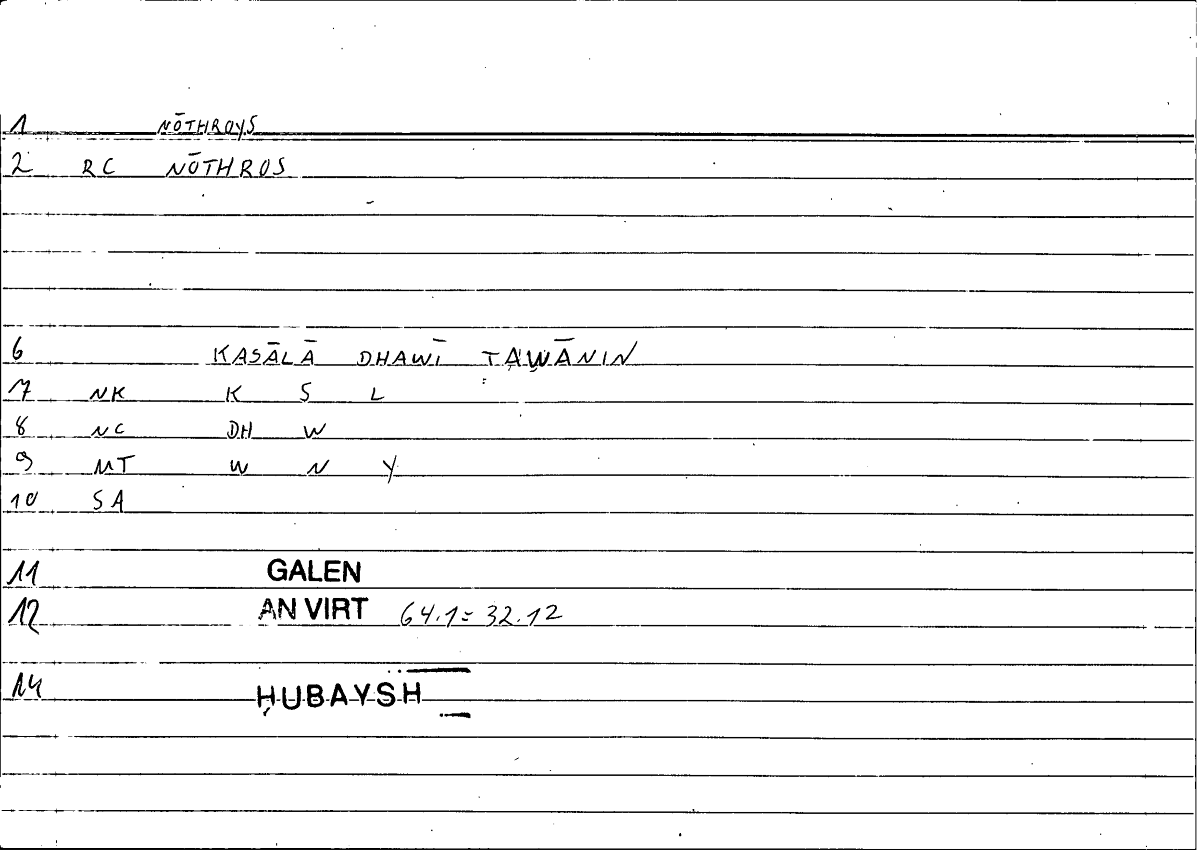 1 NŌTHROYS
2 RC NŌTHROS
6 KASĀLĀ DHAWĪ TAWĀNIN
7 NK K S L
8 NC DH W
9 MT W N Y
10 SA
11 GALEN
12 AN VIRT 64.1 = 32.12
14 ḤUBAYSH